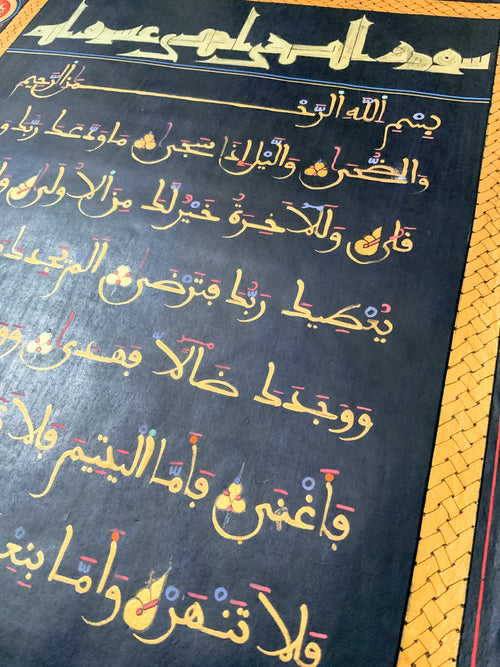 سورة الضحى احدى عشر
بِسْمِ اللَّهِ الرَّحْمَٰنِ الرَّحِيمِ
وَالضُّحَىٰ وَالَّيْلِ إِذَا سَجَىٰ مَا وَدَّعَكَ رَبُّكَ وَ
قَلَىٰ وَلَلَاخِرَةُ خَيْرٌ لَّكَ مِنَ الُاولَىٰ
يُعْطِيكَ رَبُّكَ فَتَرْضَىٰ أَلَمْ يَجِدْكَ
وَوَجَدَكَ ضَالًّا فَهَدَىٰ
فَأَغْنَىٰ فَأَمَّا الْيَتِيمَ فَلَا
فَلَا تَنْهَرْ وَأَمَّا بِنِعْ